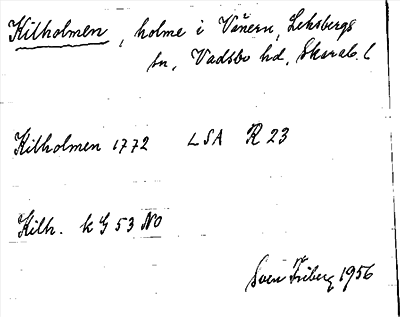 Kilholmen, holme i Vänern, Leksbergs
sn, Vadsbo hd, Skarab. l
Kilholmen 1772 LSA R 23
Kilh. k G 53 NO
Sven Friberg 1956